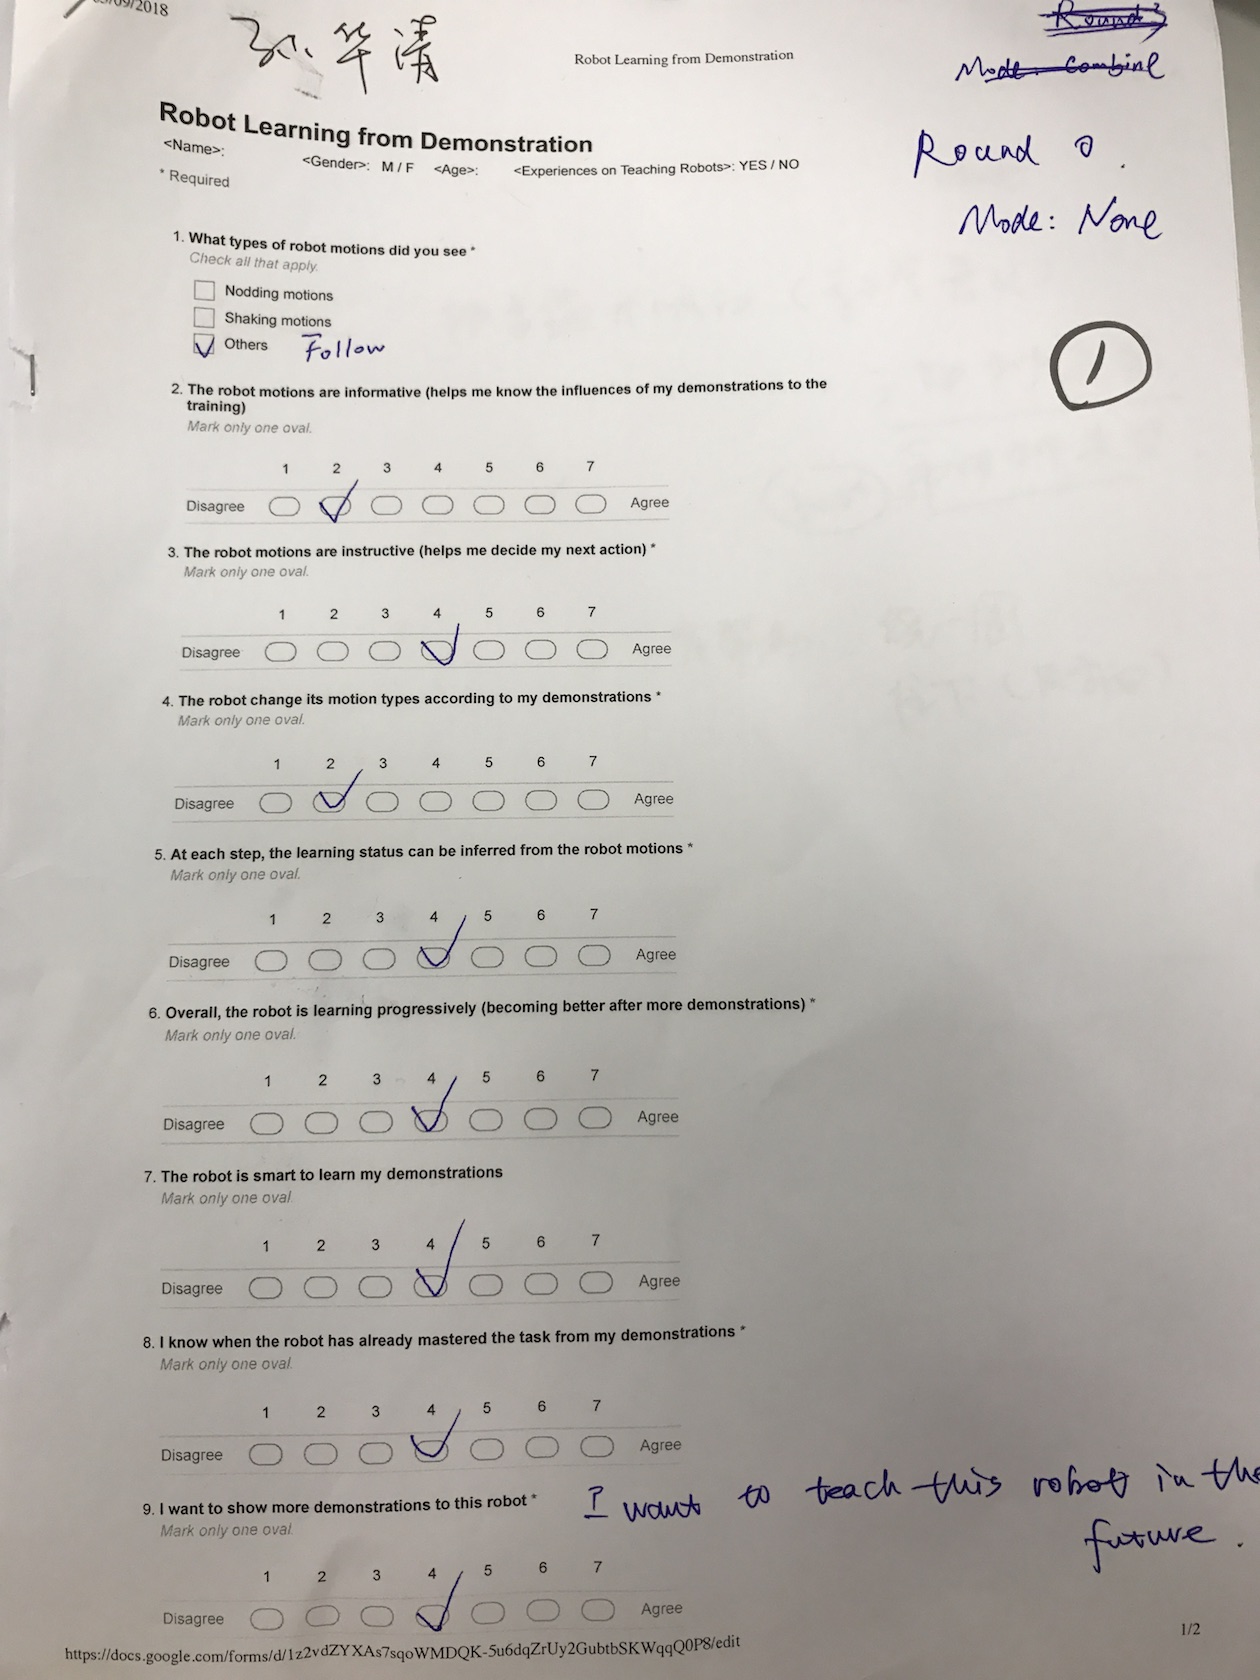 /09/2018
孙华清
Robot Learning from Demonstration
Round 3
Mode: Combine
Round 0.
Mode: None
Robot Learning from Demonstration
<Name>: <Gender>: M / F <Age>: <Experiences on Teaching Robots>: YES / NO
* Required
1. What types of robot motions did you see *
Check all that apply.
Nodding motions
Shaking motions
Others Follow
1
2. The robot motions are informative (helps me know the influences of my demonstrations to the
training)
Mark only one oval.
1 2 3 4 5 6 7
Disagree Agree
3. The robot motions are instructive (helps me decide my next action) *
Mark only one oval.
1 2 3 4 5 6 7
Disagree Agree
4. The robot change its motion types according to my demonstrations *
Mark only one oval.
1 2 3 4 5 6 7
Disagree Agree
5. At each step, the learning status can be inferred from the robot motions *
Mark only one oval.
1 2 3 4 5 6 7
Disagree Agree
6. Overall, the robot is learning progressively (becoming better after more demonstrations) *
Mark only one oval.
1 2 3 4 5 6 7
Disagree Agree
7. The robot is smart to learn my demonstrations
Mark only one oval.
1 2 3 4 5 6 7
Disagree Agree
8. I know when the robot has already mastered the task from my demonstrations *
Mark only one oval.
1 2 3 4 5 6 7
Disagree Agree
9. I want to show more demonstrations to this robot *
I want to teach this robot in the
future.
Mark only one oval.
1 2 3 4 5 6 7
Disagree Agree
https://docs.google.com/forms/d/1z2vdZYXAs7sqoWMDQK-5u6dqZrUy2GubtbSKWqqQ0P8/edit
1/2